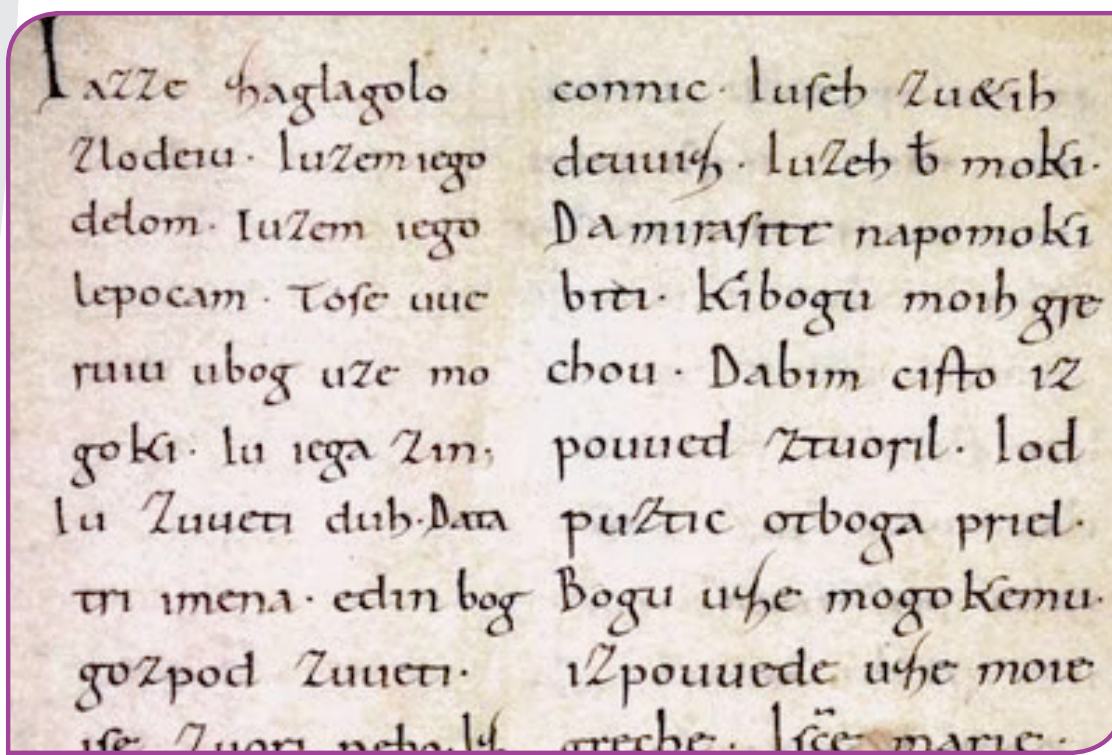 Iazze zaglagolo
zlodeiu · Iuzem iego
delom · Iuzem iego
lepocam · Toſe uue
ruiu ubog uze mo
goki · Iu iega zin;
Iu zuueti duh · Data
tri imena · edin bog
gozpod zuueti ·
iſe zuori nebo · Iz
connic · Iuſeh zu&ih
deuuiz · Iuzeh ƀ moki ·
Da miraſite napomoki
biti · Kibogu moih gre
chou · Dabim ciſto iz
pouued ztuoril · Iod
puztic otboga priel ·
Bogu uze mogokemu ·
izpouuede uze moie
greche · Iſc̃e marie ·